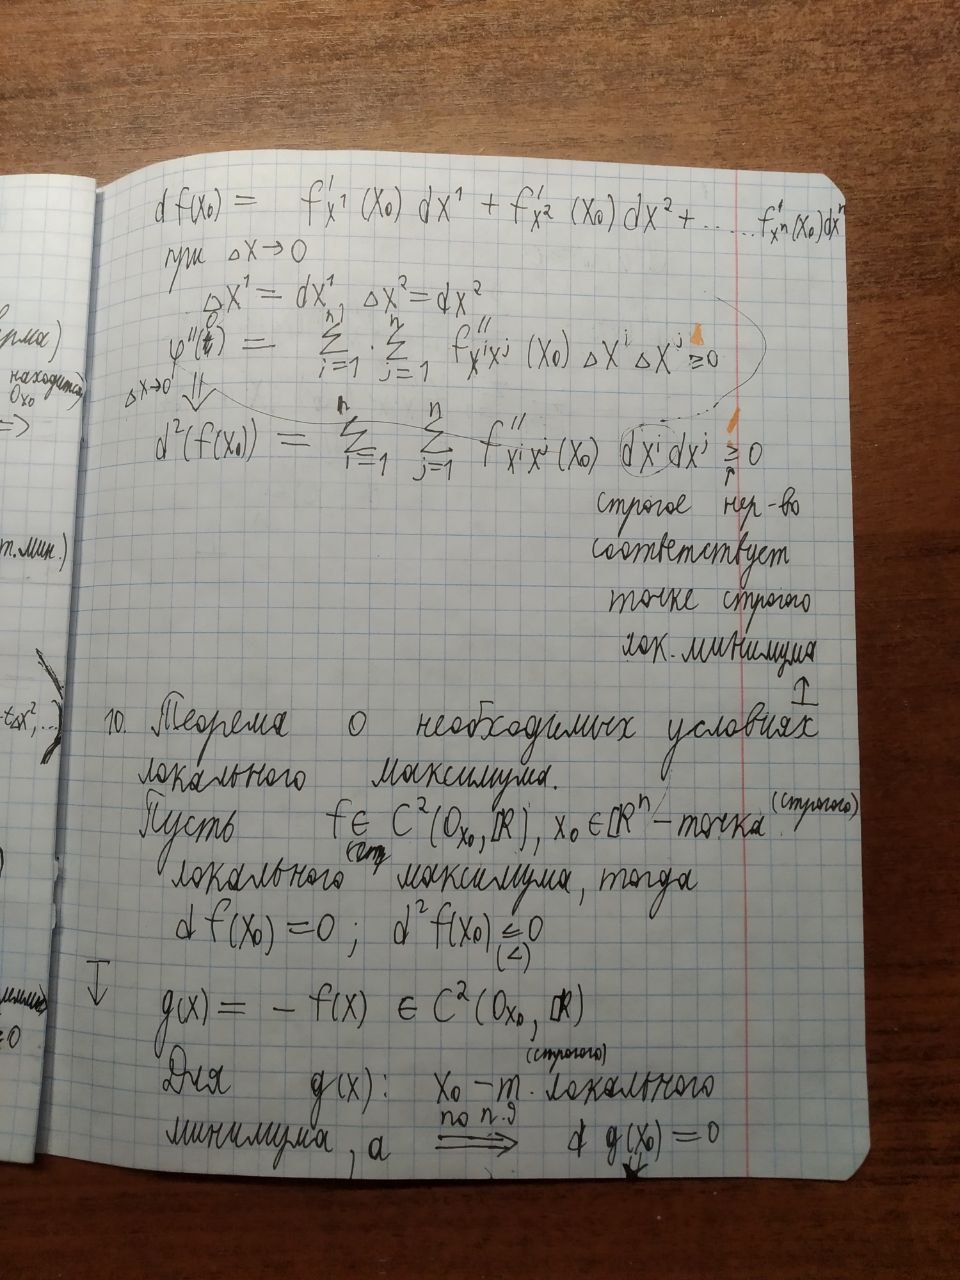 df(x₀) = f'ₓ¹(x₀) dx¹ + f'ₓ²(x₀) dx² + ...... f'ₓⁿ(x₀)dxⁿ
при Δx→0
Δx¹ = dx¹, Δx² = dx²
φ''(0) = Σⁿᵢ₌₁ · Σⁿⱼ₌₁ f''ₓⁱₓʲ (x₀) Δxⁱ Δxʲ ≥ 0
Δx→0 ⇓
d²(f(x₀)) = Σⁿᵢ₌₁ Σⁿⱼ₌₁ f''ₓⁱₓʲ(x₀) dxⁱ dxʲ ≥ 0
↑
строгое нер-во
соответствует
точке строгого
лок. минимума
10. Теорема о необходимых условиях
локального максимума.
Пусть f ∈ C²(Oₓ₀, ℝ), x₀ ∈ ℝⁿ – точка (строгого)
локального максимума, тогда
df(x₀) = 0; d²f(x₀) ≤ 0
(<)
g(x) = – f(x) ∈ C²(Oₓ₀, ℝ)
Для g(x): x₀ – т. (строгого) локального
минимума, а по п.9 ⟹ d g(x₀) = 0
находится
Oₓ₀
=>
т. мин.)